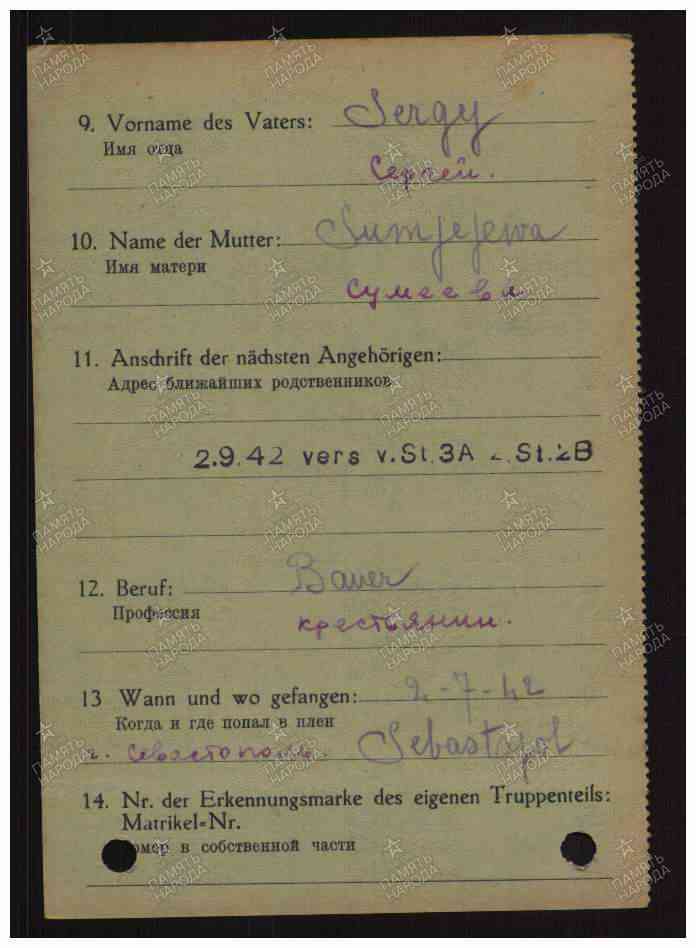 9. Vorname des Vaters: Sergy
Имя отца
Сергей.
10. Name der Mutter: Sumjejewa
Имя матери
Сумеева
11. Anschrift der nächsten Angehörigen:
Адрес ближайших родственников
2.9.42 vers v.St.3A z.St.2B
12. Beruf: Bauer
Профессия
крестьянин.
13 Wann und wo gefangen: 2-7-42
Когда и где попал в плен
г. Севастополь. Sebastopol
14. Nr. der Erkennungsmarke des eigenen Truppenteils:
Matrikel-Nr.
омер в собственной части
ПАМЯТЬ НАРОДА